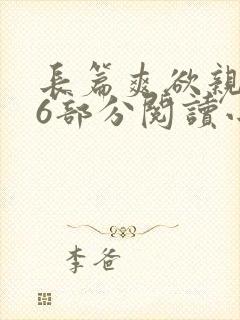 長篇爽欲親
6部分閱讀
李爸